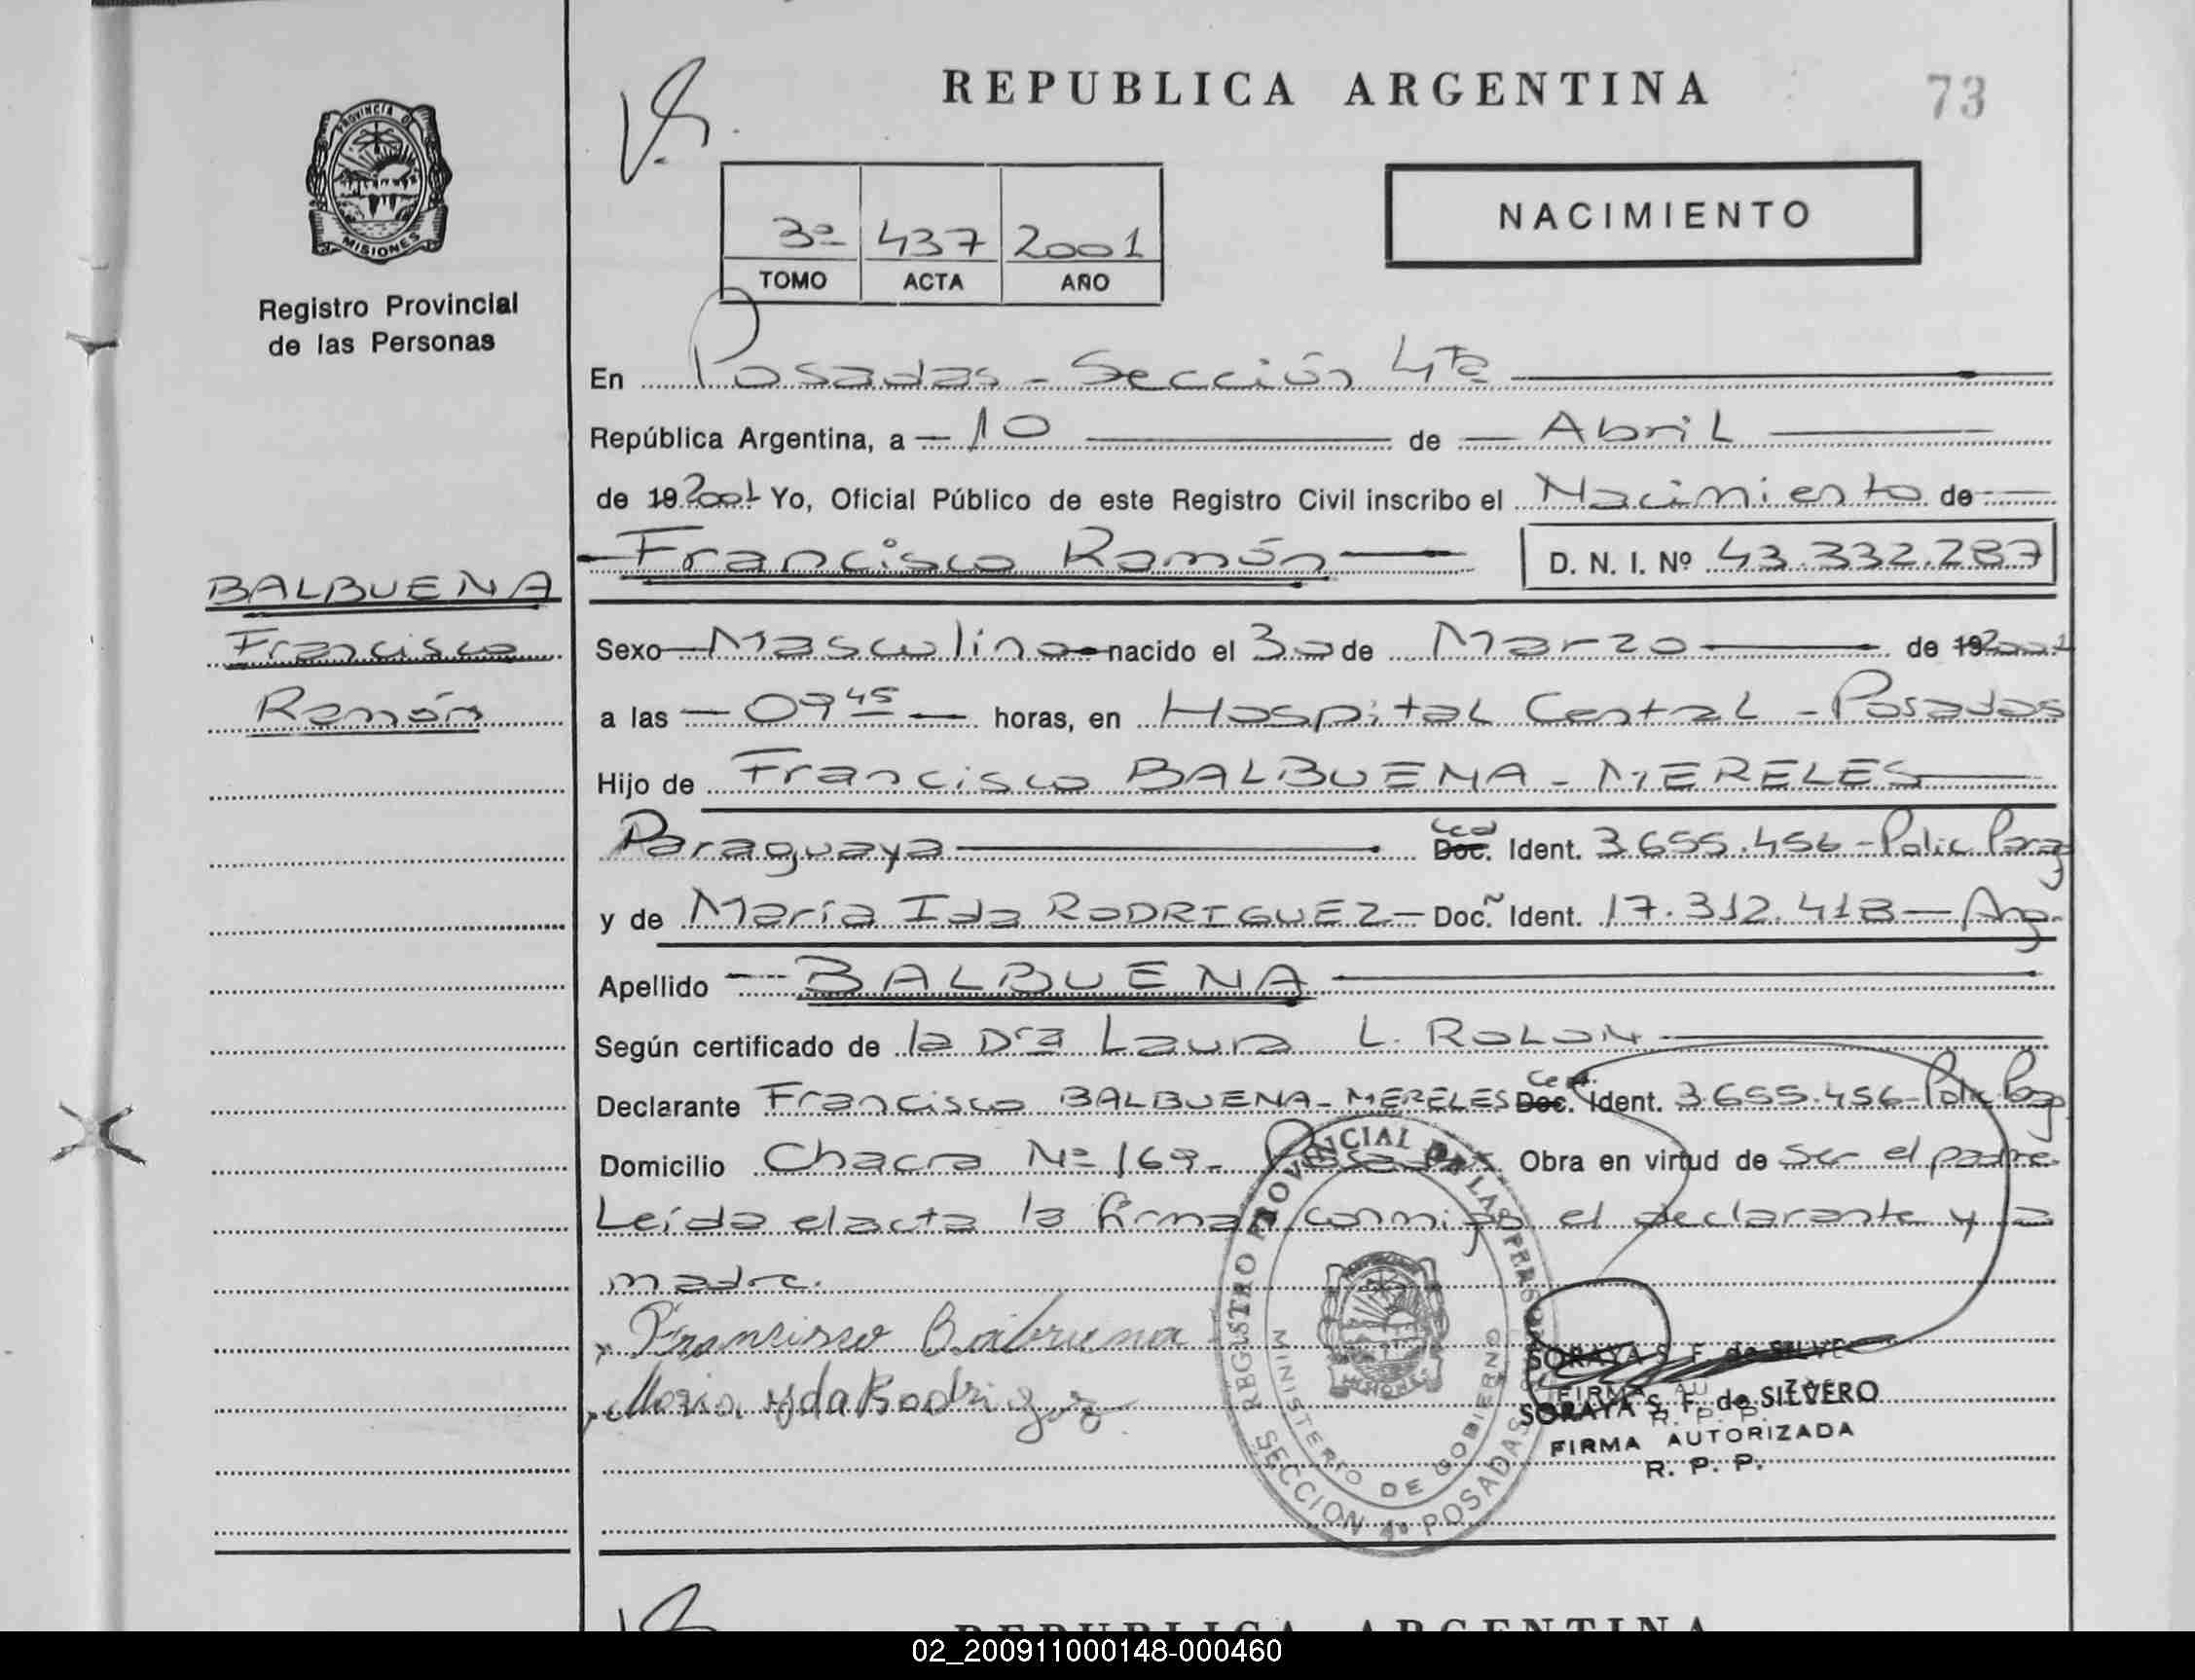 REPUBLICA ARGENTINA
73
PROVINCIA DE
MISIONES
Registro Provincial
de las Personas
3ª 437 2001
TOMO ACTA AÑO
NACIMIENTO
En Posadas - Sección 4ta
República Argentina, a 10 de Abril
de 19 2001 Yo, Oficial Público de este Registro Civil inscribo el Nacimiento de
Francisco Ramón D. N. I. Nº 43.332.287
BALBUENA
Francisco
Ramón
Sexo Masculino nacido el 30 de Marzo de 19 2001
a las 09 45 horas, en Hospital Central - Posadas
Hijo de Francisco BALBUENA - MERELES
Paraguaya Ced Doc. Ident. 3.655.456 - Polic Parag
y de María Ida RODRIGUEZ - Doc. Ident. 17.312.418 - Arg.
Apellido BALBUENA
Según certificado de la Dra Laura L. ROLON
Declarante Francisco BALBUENA - MERELES Ced. Doc. Ident. 3.655.456 - Polic Parag
Domicilio Chacra Nº 169 - Posadas Obra en virtud de ser el padre
Leída el acta la firman conmigo el declarante y la
madre.
Francisco Balbuena
Maria Yda Rodriguez
REGISTRO PROVINCIAL DE LAS PERSONAS
MINISTERIO DE GOBIERNO
SECCION 4ª POSADAS
SORAYA S. F. de SILVE
SORAYA S. F. de SILVERO
FIRMA AUTORIZADA
R. P. P.
REPUBLICA ARGENTINA
02_200911000148-000460